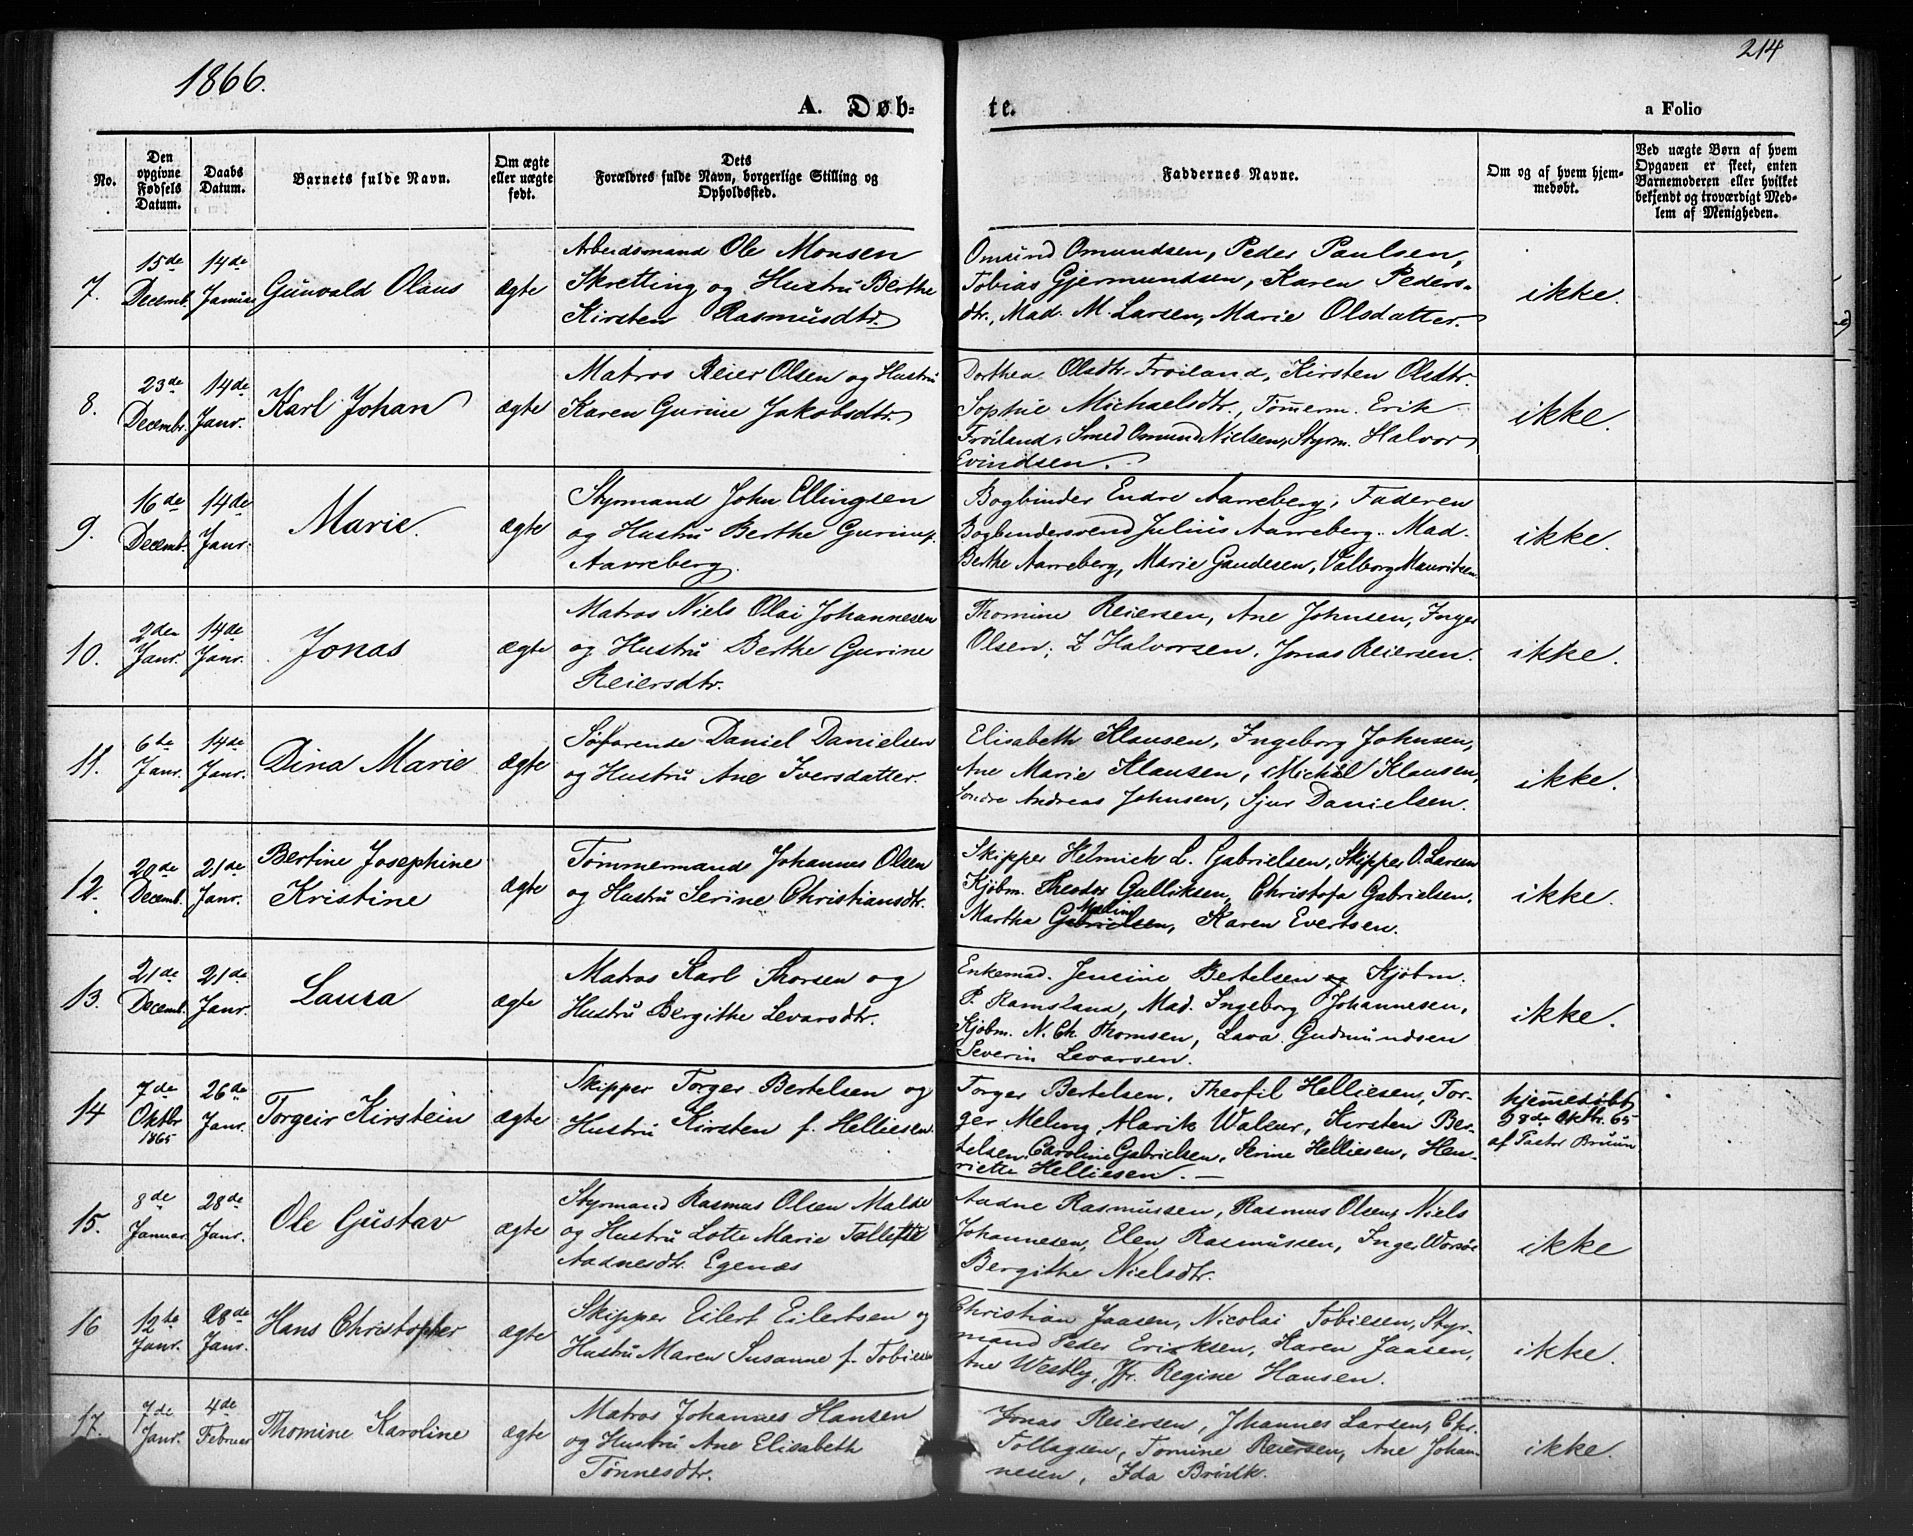 1866.
214
A. Døb-
te.
a Folio
No.
Den opgivne Fødsels Datum.
Daabs Datum.
Barnets fulde Navn.
Om ægte eller uægte født.
Dets Forældres fulde Navn, borgerlige Stilling og Opholdssted.
Faddernes Navne.
Om og af hvem hjemmedøbt.
Ved uægte Børn af hvem Opgaven er skeet, enten Barnemoderen eller hvilket bekjendt og troværdigt Medlem af Menigheden.
7.
15de Decemb.
14de Januar
Gunvald Olaus
ægte
Arbeidsmand Ole Monsen
Skretting og Hustru Berthe
Kirsten Rasmusdtr.
Omund Omundsen, Peder Paulsen,
Tobias Gjermundsen, Karen Peders-
dtr., Mad. M. Larsen, Marie Olsdatter.
ikke.
8.
23de Decembr.
14de Janr.
Karl Johan
ægte
Matros Reier Olsen og Hustru
Karen Gurine Jakobsdtr.
Dorthea Olsdtr Froiland, Kirsten Olsdtr.
Sophie Michaelsdtr., Tømerm. Erik
Froiland, Smed Omund Nielsen, Styrm. Halvor
Evindsen.
ikke.
9.
16de Decemb.
14de Janr.
Marie.
ægte
Styrmand John Ellingsen
og Hustru Berthe Gurine f.
Aarreberg.
Bogbinder Endre Aarreberg, Faderen
Bogbindersvend Julius Aarreberg. Mad.
Berthe Aarreberg, Marie Gaudesen, Valborg Mauritsen
ikke.
10.
2den Janr.
14de Janr.
Jonas
ægte
Matros Niels Olai Johannesen
og Hustru Berthe Gurine
Reiersdtr.
Thomine Reiersen, Ane Johnsen, Inger
Olsen, Z Halvorsen, Jonas Reiersen.
ikke.
11.
6te Janr.
14de Janr.
Dina Marie
ægte
Søfarende Daniel Danielsen
og Hustru Ane Iversdatter.
Elisabeth Klausen, Ingeborg Johnsen,
Ane Marie Klausen, Michal Klausen,
Sondre Andreas Johnsen, Sjur Danielsen.
ikke.
12.
20de Decemb.
21de Janr.
Bertine Josephine
Kristine
ægte
Tømmermand Johannes Olsen
og Hustru Serine Christiansdtr.
Skipper Helmich L. Gabrielsen, Skipper O. Larsen
Kjøbm. Theodor Gulliksen, Christofa Gabrielsen,
Martha Gabrielsen, Karen Evertsen.
ikke.
13.
21de Decemb.
21de Janr.
Laura
ægte
Matros Karl Thorsen og
Hustru Bergithe Levarsdtr.
Enkemad. Jensine Bertelsen og Kjøbm.
P. Ramsland, Mad. Ingeborg Johannesen,
Kjøbm. N. Ch. Thomsen, Lava Gudmundsen
Severin Levarsen.
ikke.
14
7de Oktbr 1865
26de Janr.
Torgeir Kirstein
ægte
Skipper Torger Bertelsen og
Hustru Kirsten f. Helliesen.
Torger Bertelsen, Theofil Helliesen, Tor-
ger Meling, Alarik Waleur, Kirsten Ber-
telsen, Caroline Gabrielsen, Serine Helliesen, Hen-
riette Helliesen. —
hjemmedøbt
28de Oktbr. 65
af Pastor Bruun
15.
8de Januar.
28de Janr.
Ole Gustav
ægte
Styrmand Rasmus Olsen Malde
og Hustru Lotte Marie
Aadnesdtr. Egenæs
Aadne Rasmussen, Rasmus Olsen, Niels
Johannesen, Elen Rasmussen, Inger Worsøe
Bergithe Nielsdtr.
ikke
16
12te Janr.
28de Janr.
Hans Christopher
ægte
Skipper Eilert Eilertsen og
Hustru Maren Susanne f. Tobiesen
Christian Jaasen, Nicolai Tobiesen, Styr-
mand Peder Eriksen, Karen Jaasen,
Ane Westly, Jfr. Regine Hansen.
ikke.
17.
7de Janr.
4de Februar
Thomine Karoline
ægte
Matros Johannes Hansen
og Hustru Ane Elisabeth
Tønnesdtr.
Jonas Reiersen, Johannes Larsen, Chr.
Follagsen, Tomine Reiersen, Ane Johan-
nesen, Ida Brink.
ikke.